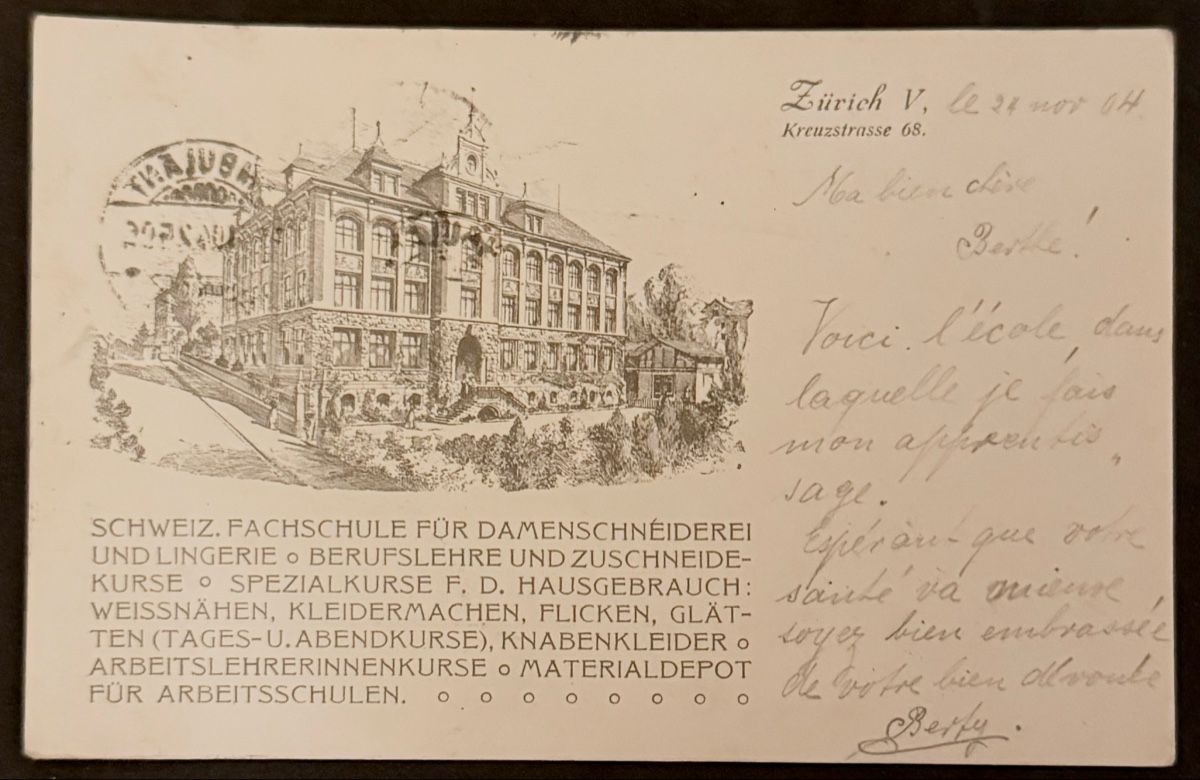 Zürich V, le 24 nov 04
Kreuzstrasse 68.
Ma bien chère
Berthe!
Voici l'école, dans
laquelle je fais
mon apprentis„
sage.
Espérant que votre
santé va mieux
soyez bien embrassée
de votre bien dévouée
Berty.
SCHWEIZ. FACHSCHULE FÜR DAMENSCHNEIDEREI
UND LINGERIE o BERUFSLEHRE UND ZUSCHNEIDE-
KURSE o SPEZIALKURSE F. D. HAUSGEBRAUCH:
WEISSNÄHEN, KLEIDERMACHEN, FLICKEN, GLÄT-
TEN (TAGES- U. ABENDKURSE), KNABENKLEIDER o
ARBEITSLEHRERINNENKURSE o MATERIALDEPOT
FÜR ARBEITSSCHULEN. o o o o o o o o